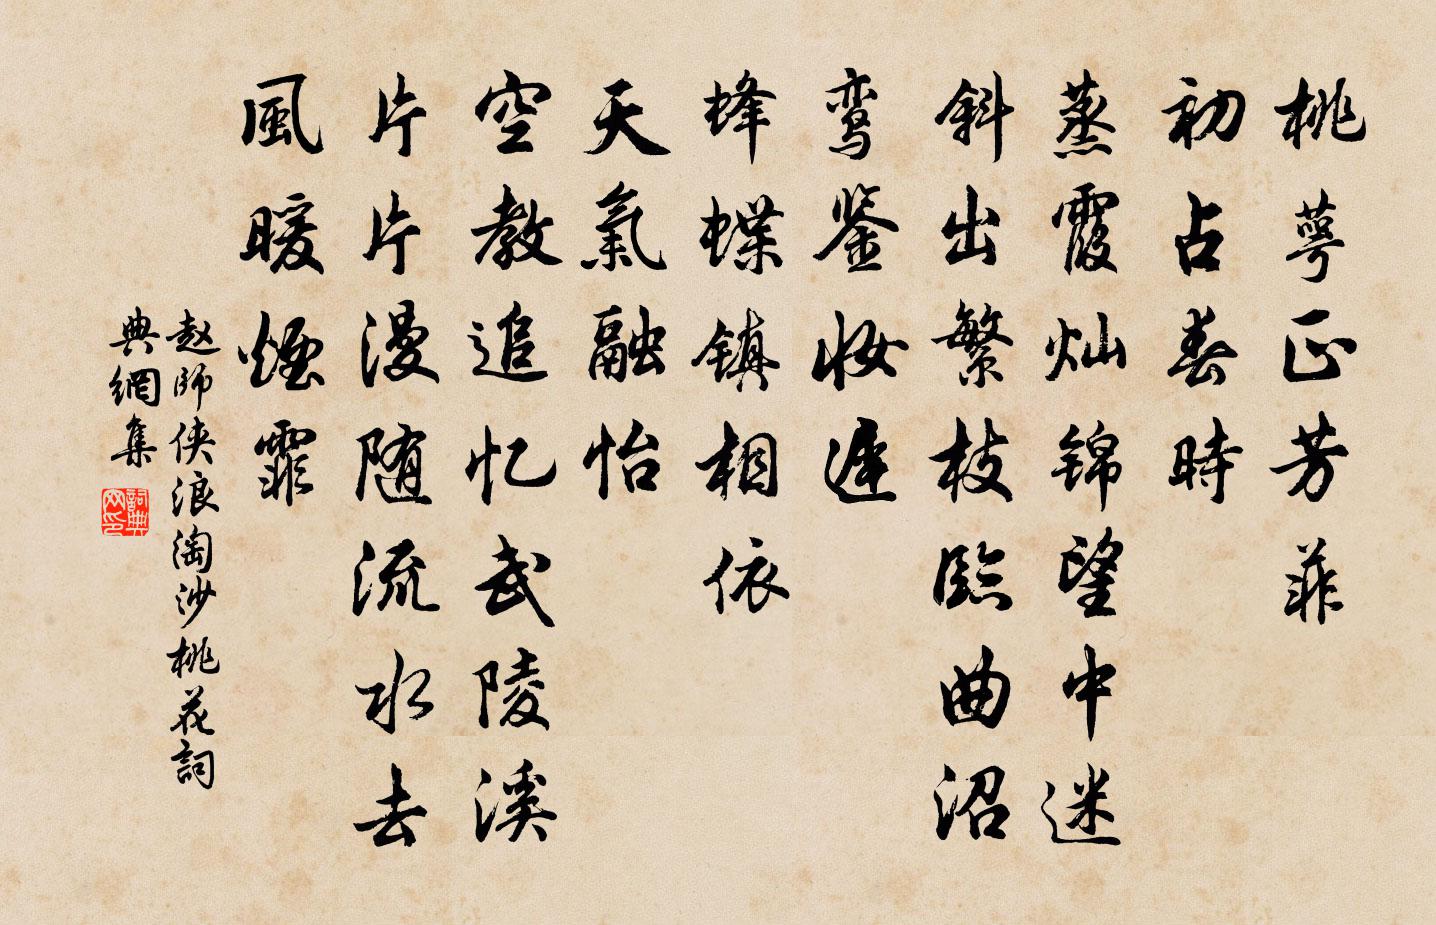 桃萼正芳菲
初占春時
蒸霞灿锦望中迷
斜出繁枝臨曲沼
鸾鉴妆遅
蜂蝶镇相依
天氣融怡
空教追忆武陵溪
片片漫随流水去
風暖煙霏
赵師侠浪淘沙桃花詞
典網集
詞典网印